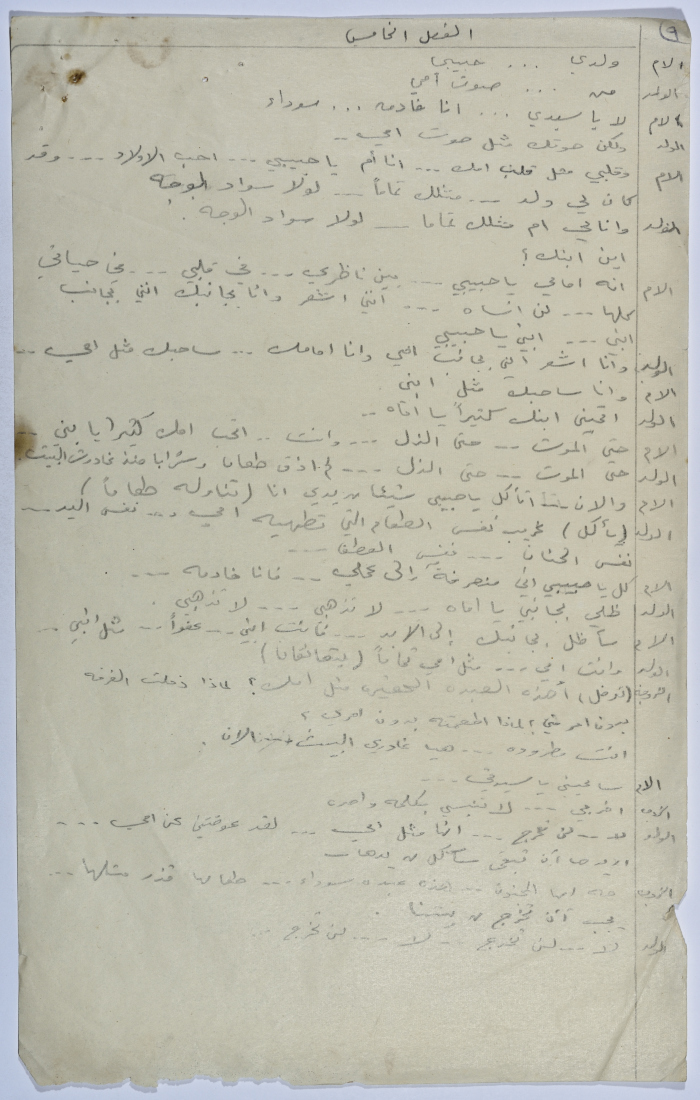 ٩
الفصل الخامس
الام ولدي ... حبيبي
الولد من ... صوت أمي
الام لا يا سيدي ... انا خادمه ... سوداء
الولد ولكن صوتك مثل صوت امي ..
الام وقلبي مثل قلب امك ... انا أم يا حبيبي ... احب الاولاد ... وقد
كان لي ولد ... مثلك تماماً ... لولا سواد الوجه
الولد وانا لي ام مثلك تماما ... لولا سواد الوجه .
اين ابنك ؟
الام انه امامي يا حبيبي ... بين ناظري ... في قلبي ... في حياتي
كلها ... لن انساه ... انني اشعر وانا بجانبك انني بجانب
ابني ... ابني يا حبيبي
الولد وأنا اشعر انني بجانب امي وانا امامك ... ساحبك مثل امي ...
الام وانا ساحبك مثل ابني
الولد اتحبين ابنك كثيراً يا اماه ..
الام حتى الموت ... حتى الذل ... وانت .. اتحب امك كثيرا يا بني ...
الولد حتى الموت ... حتى الذل ... لم اذق طعاما وشرابا منذ غادرت البيت
الام والان أتأكل يا حبيبي شيئا من يدي انا (تناوله طعاماً)
الولد (يأكل) غريب نفس الطعام التي تطهيه امي ... نفس اليد ...
نفس الحنان ... نفس العطف ...
الام كل يا حبيبي اني منصرفة الى عملي ... فانا خادمه ...
الولد ظلي بجانبي يا اماه ... لا تذهبي ... لا تذهبي .
الام سأظل بجانبك إلى الابد ... فانت ابني .. عفواً .. مثل ابني ..
الولد وانت امي ... مثل امي تماماً (يتعانقان)
الزوجة (تدخل) أهذه العبده الحقيره مثل أمك ؟ لماذا دخلت الغرفه
بدون امر مني ؟ لماذا اطعمته بدون امري ؟
انت مطروده ... هيا غادري البيت الان .
الام سامحيني يا سيدتي ...
الزوجة اخرجي ... لا تنبسي بكلمه واحده
الولد لا ... لن تخرج ... انها مثل امي ... لقد عوضتني عن امي ...
اريدها أن تبقى سآكل من يدها
الزوجة ايها المجنون ... هذه عبده سوداء ... طعامها قذر مثلها ...
يجب أن تخرج من بيتنا .
الولد لا ... لن تخرج .. لا ... لن تخرج ..